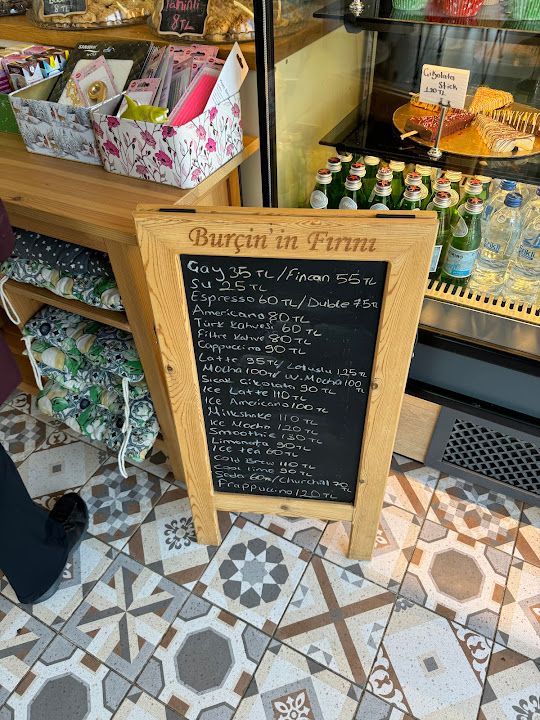 8 TL
Tahinli
8 TL
SAMSUN
Çikolata
Stick
130 TL
Burçin'in Fırını
Çay 35 TL / Fincan 55 TL
Su 25 TL
Espresso 60 TL / Duble 75 TL
Americano 80 TL
Türk Kahvesi 60 TL
Filtre Kahve 80 TL
Cappuccino 90 TL
Latte 95 TL / Lotuslu 125 TL
Mocha 100 TL W. Mocha 100 TL
Sıcak Çikolata 90 TL
Ice Latte 110 TL
Ice Americano 100 TL
Milkshake 110 TL
Ice Mocha 120 TL
Smoothie 130 TL
Limonata 90 TL
Ice tea 60 TL
Cold Brew 110 TL
Cool lime 90 TL
Soda 60 TL / Churchill
Frappuccino 120 TL